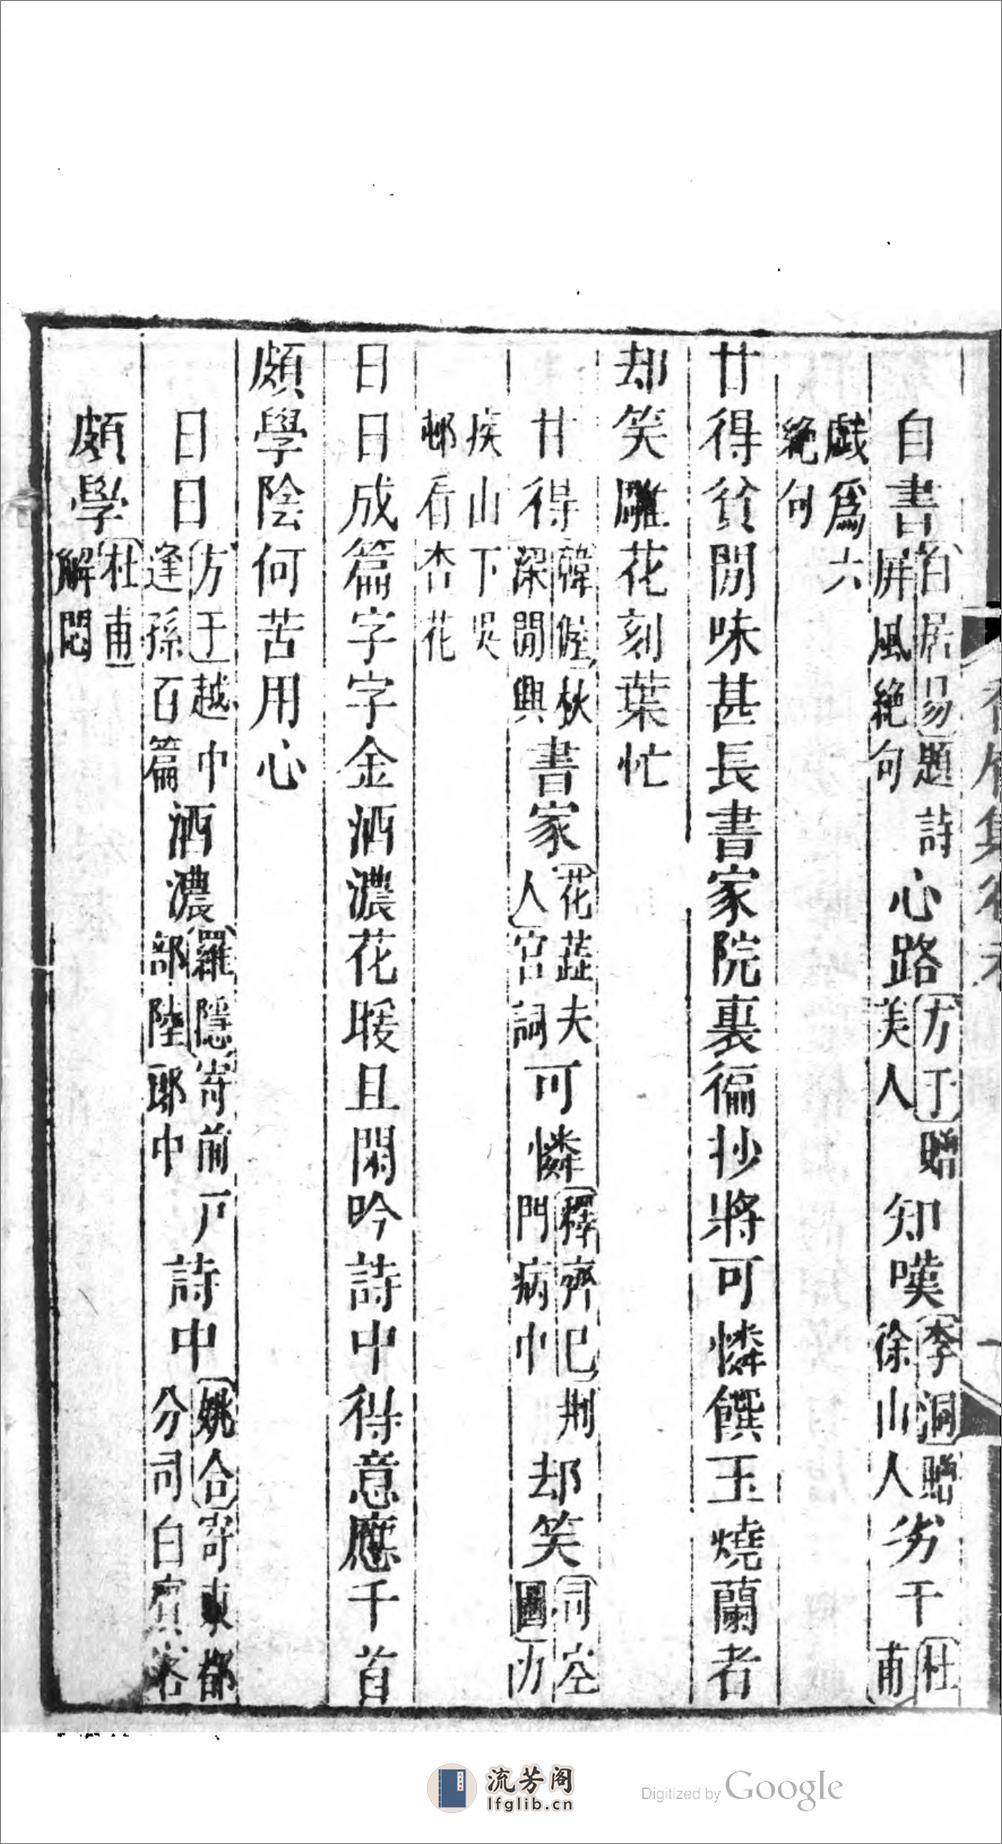 自書白居易題詩屏風絶句心路方干贈美人知嘆李洞贈徐山人劣于杜甫
戯爲六絶句
甘得貧閒味甚長書家院裏徧抄將可憐饌玉燒蘭者
却笑雕花刻葉忙
甘得韓偓秋深閒興書家花蕊夫人宮詞可憐釋齊已荆門病中却笑司空圖力
疾山下吳邨看杏花
日日成篇字字金酒濃花暖且閑吟詩中得意應千首
頗學陰何苦用心
日日方干越中逢孫百篇酒濃羅隱寄前戸部陸郎中詩中姚合寄東都分司白賓客
頗學杜甫解悶
流芳阁
lfglib.cn
Digitized by Google